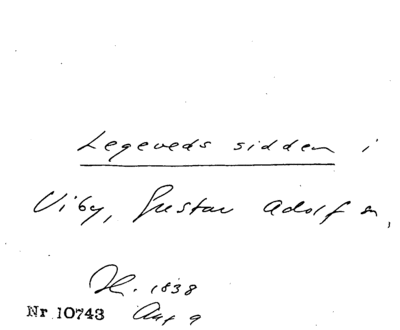 Legeveds sidden i
Viby, Gustav Adolf sn,
H. 1838
Nr 10743 Aug 9